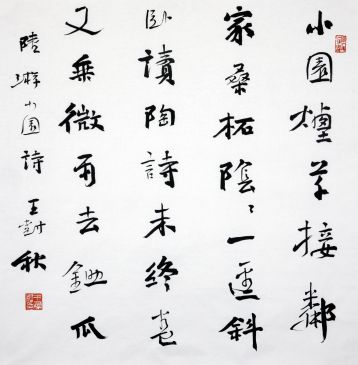 小園煙草接鄰
家桑柘陰〻一徑斜
臥讀陶詩未終卷
又乘微雨去鋤瓜
陸游小園詩 王秋